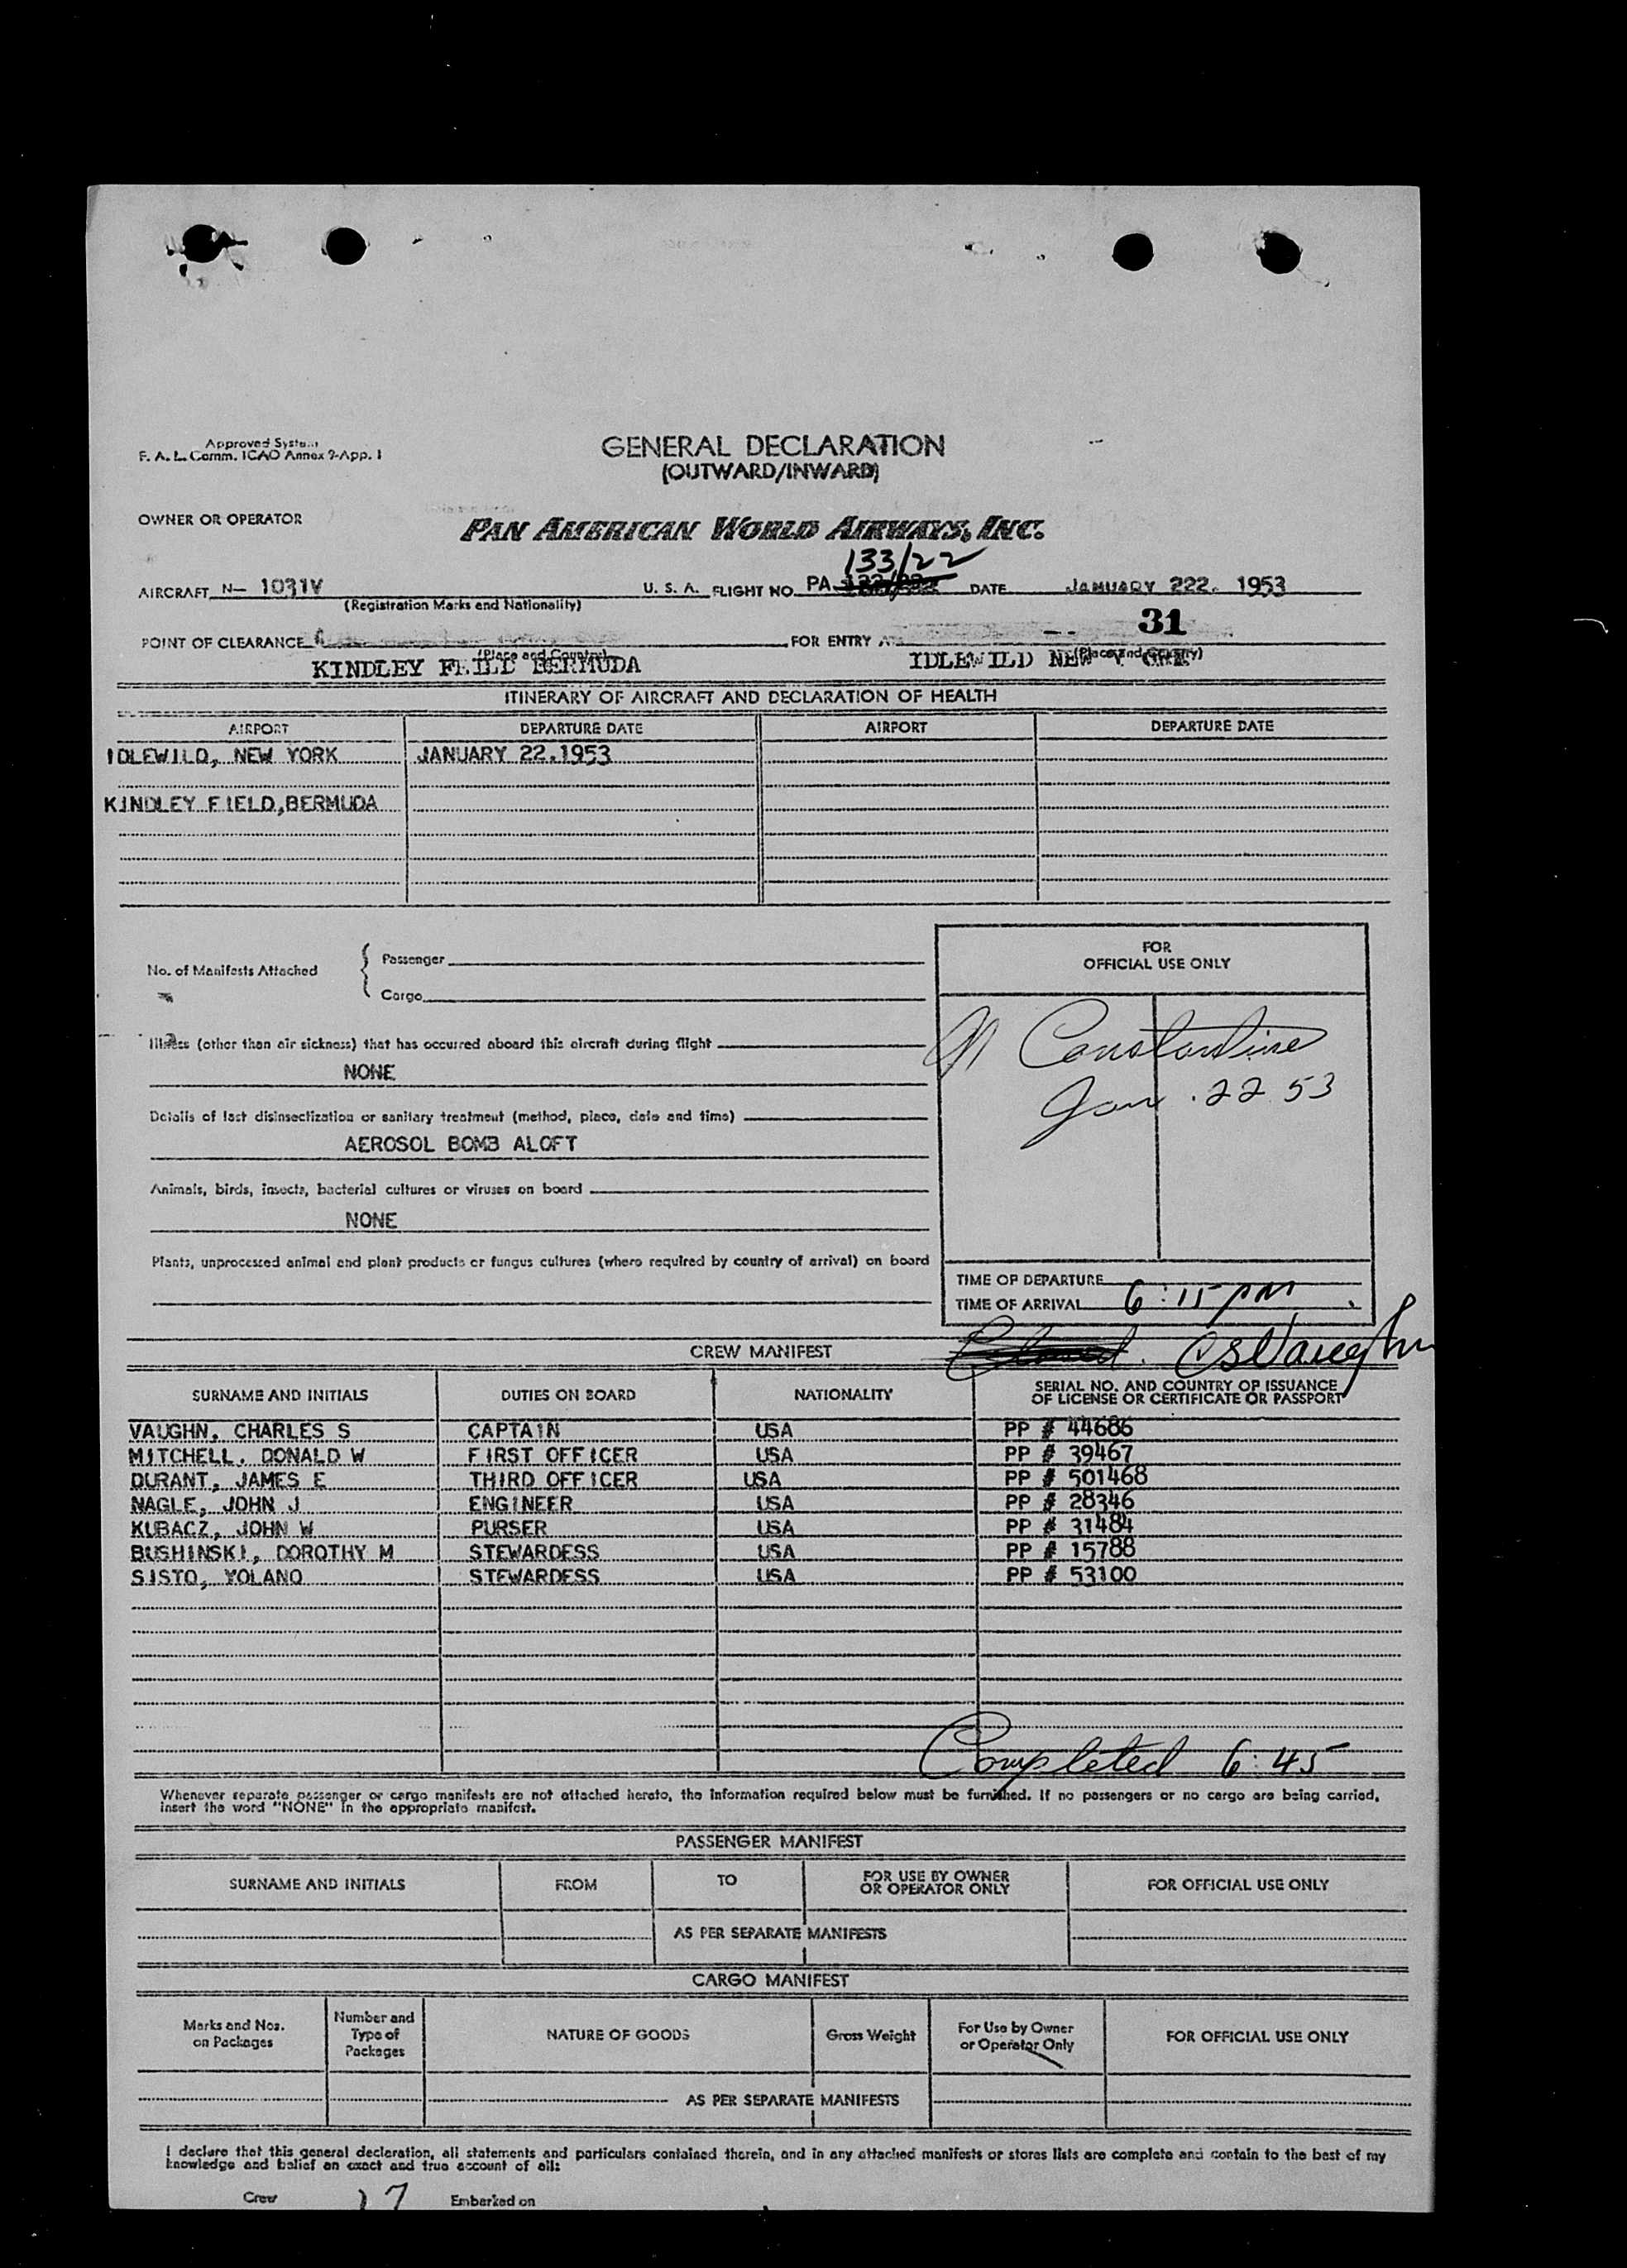 Approved System
F. A. L. Comm. ICAO Annex 9-App. I
GENERAL DECLARATION
(OUTWARD/INWARD)
OWNER OR OPERATOR
PAN AMERICAN WORLD AIRWAYS, INC.
133/22
AIRCRAFT N— 1031V U. S. A. FLIGHT NO. PA DATE JANUARY 222. 1953
(Registration Marks and Nationality)
31
POINT OF CLEARANCE FOR ENTRY AT
(Place and Country) (Place and Country)
KINDLEY BERMUDA IDLEWILD NEW Y ORK
ITINERARY OF AIRCRAFT AND DECLARATION OF HEALTH
AIRPORT DEPARTURE DATE AIRPORT DEPARTURE DATE
IDLEWILD, NEW YORK JANUARY 22.1953
KINDLEY FIELD,BERMUDA
FOR
OFFICIAL USE ONLY
No. of Manifests Attached
Passenger
Cargo
Constantine
Jan. 22 53
Illness (other than air sickness) that has occurred aboard this aircraft during flight
NONE
Details of last disinsectization or sanitary treatment (method, place, date and time)
AEROSOL BOMB ALOFT
Animals, birds, insects, bacterial cultures or viruses on board
NONE
Plants, unprocessed animal and plant products or fungus cultures (where required by country of arrival) on board
TIME OF DEPARTURE
TIME OF ARRIVAL 6:15 PM
CREW MANIFEST CSVaughn
SURNAME AND INITIALS DUTIES ON BOARD NATIONALITY SERIAL NO. AND COUNTRY OF ISSUANCE
OF LICENSE OR CERTIFICATE OR PASSPORT
VAUGHN, CHARLES S CAPTAIN USA PP # 44686
MITCHELL, DONALD W FIRST OFFICER USA PP # 39467
DURANT, JAMES E THIRD OFFICER USA PP # 501468
NAGLE, JOHN J ENGINEER USA PP # 28346
KUBACZ, JOHN W PURSER USA PP # 31484
BUSHINSKI, DOROTHY M STEWARDESS USA PP # 15788
SISTO, YOLANO STEWARDESS USA PP # 53100
Completed 6:45
Whenever separate passenger or cargo manifests are not attached hereto, the information required below must be furnished. If no passengers or no cargo are being carried,
insert the word "NONE" in the appropriate manifest.
PASSENGER MANIFEST
SURNAME AND INITIALS FROM TO FOR USE BY OWNER
OR OPERATOR ONLY FOR OFFICIAL USE ONLY
AS PER SEPARATE MANIFESTS
CARGO MANIFEST
Marks and Nos.
on Packages
Number and
Type of
Packages
NATURE OF GOODS
Gross Weight
For Use by Owner
or Operator Only
FOR OFFICIAL USE ONLY
AS PER SEPARATE MANIFESTS
I declare that this general declaration, all statements and particulars contained therein, and in any attached manifests or stores lists are complete and contain to the best of my
knowledge and belief an exact and true account of all:
Crew 7 Embarked on